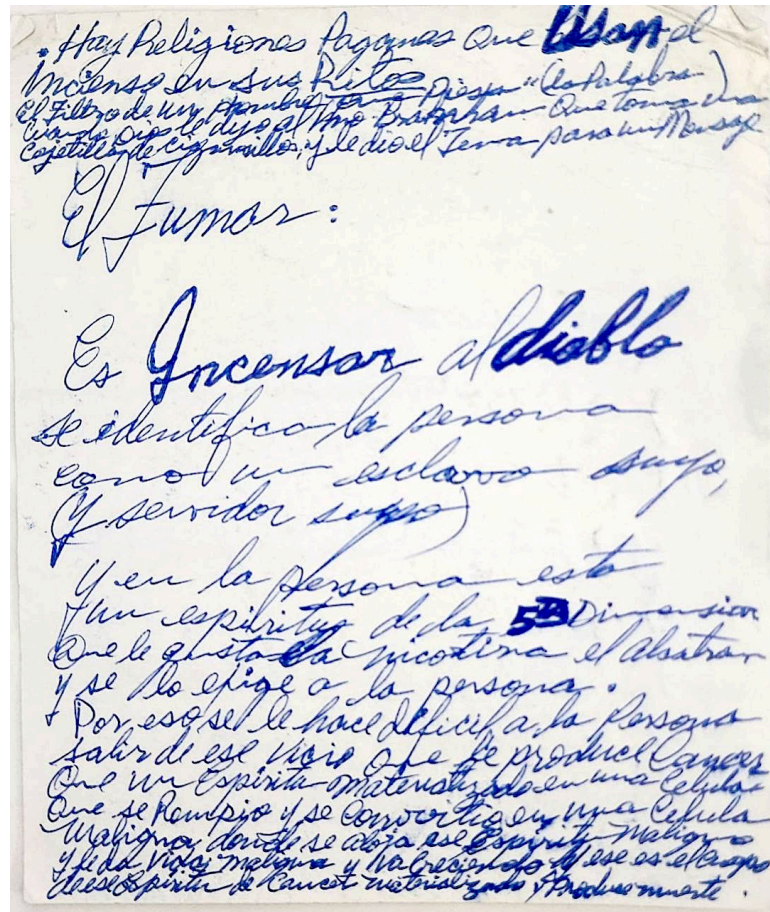 . Hay Religiones Paganas Que Usan el
Incienso en sus Ritos
El Filtro de un Hombre Que Piensa "(la Palabra)
Cuando Dios le dijo al Hno Branham Que toma una
Cajetilla de Cigarrillos, y le dio el Tema para un Mensaje
El Fumar:
Es Incensar al diablo
se identifica la persona
como un esclavo suyo,
(Y servidor suyo)
Y en la persona esta
un espiritu de la 5ta Dimension
Que le gusta la nicotina el alsatran
y se lo exige a la persona.
Por eso se le hace dificil a la Persona
salir de ese vicio que le produce Cancer
Que un Espiritu materializado en una Celula
Que se Rompio y se Convirtio en una Celula
Maligna, donde se aloja ese Espiritu Maligno
y le da vida maligna y va creciendo y ese es el cuerpo
de ese Espiritu de Cancer materializado y Produse muerte.